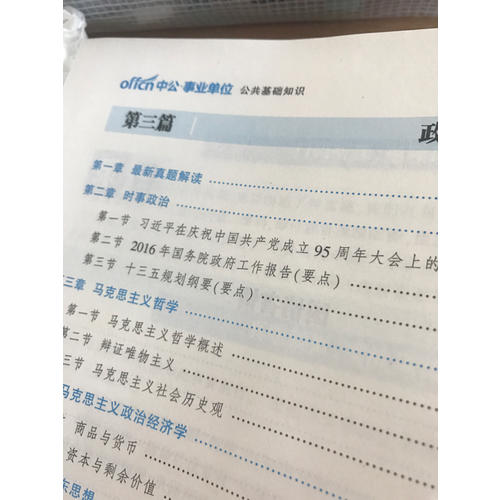 offcn中公·事业单位 公共基础知识
第三篇 政
第一章 最新真题解读
第二章 时事政治
第一节 习近平在庆祝中国共产党成立95周年大会上的
第二节 2016年国务院政府工作报告(要点)
第三节 十三五规划纲要(要点)
三章 马克思主义哲学
第一节 马克思主义哲学概述
第二节 辩证唯物主义
三节 马克思主义社会历史观
马克思主义政治经济学
商品与货币
资本与剩余价值
东思想